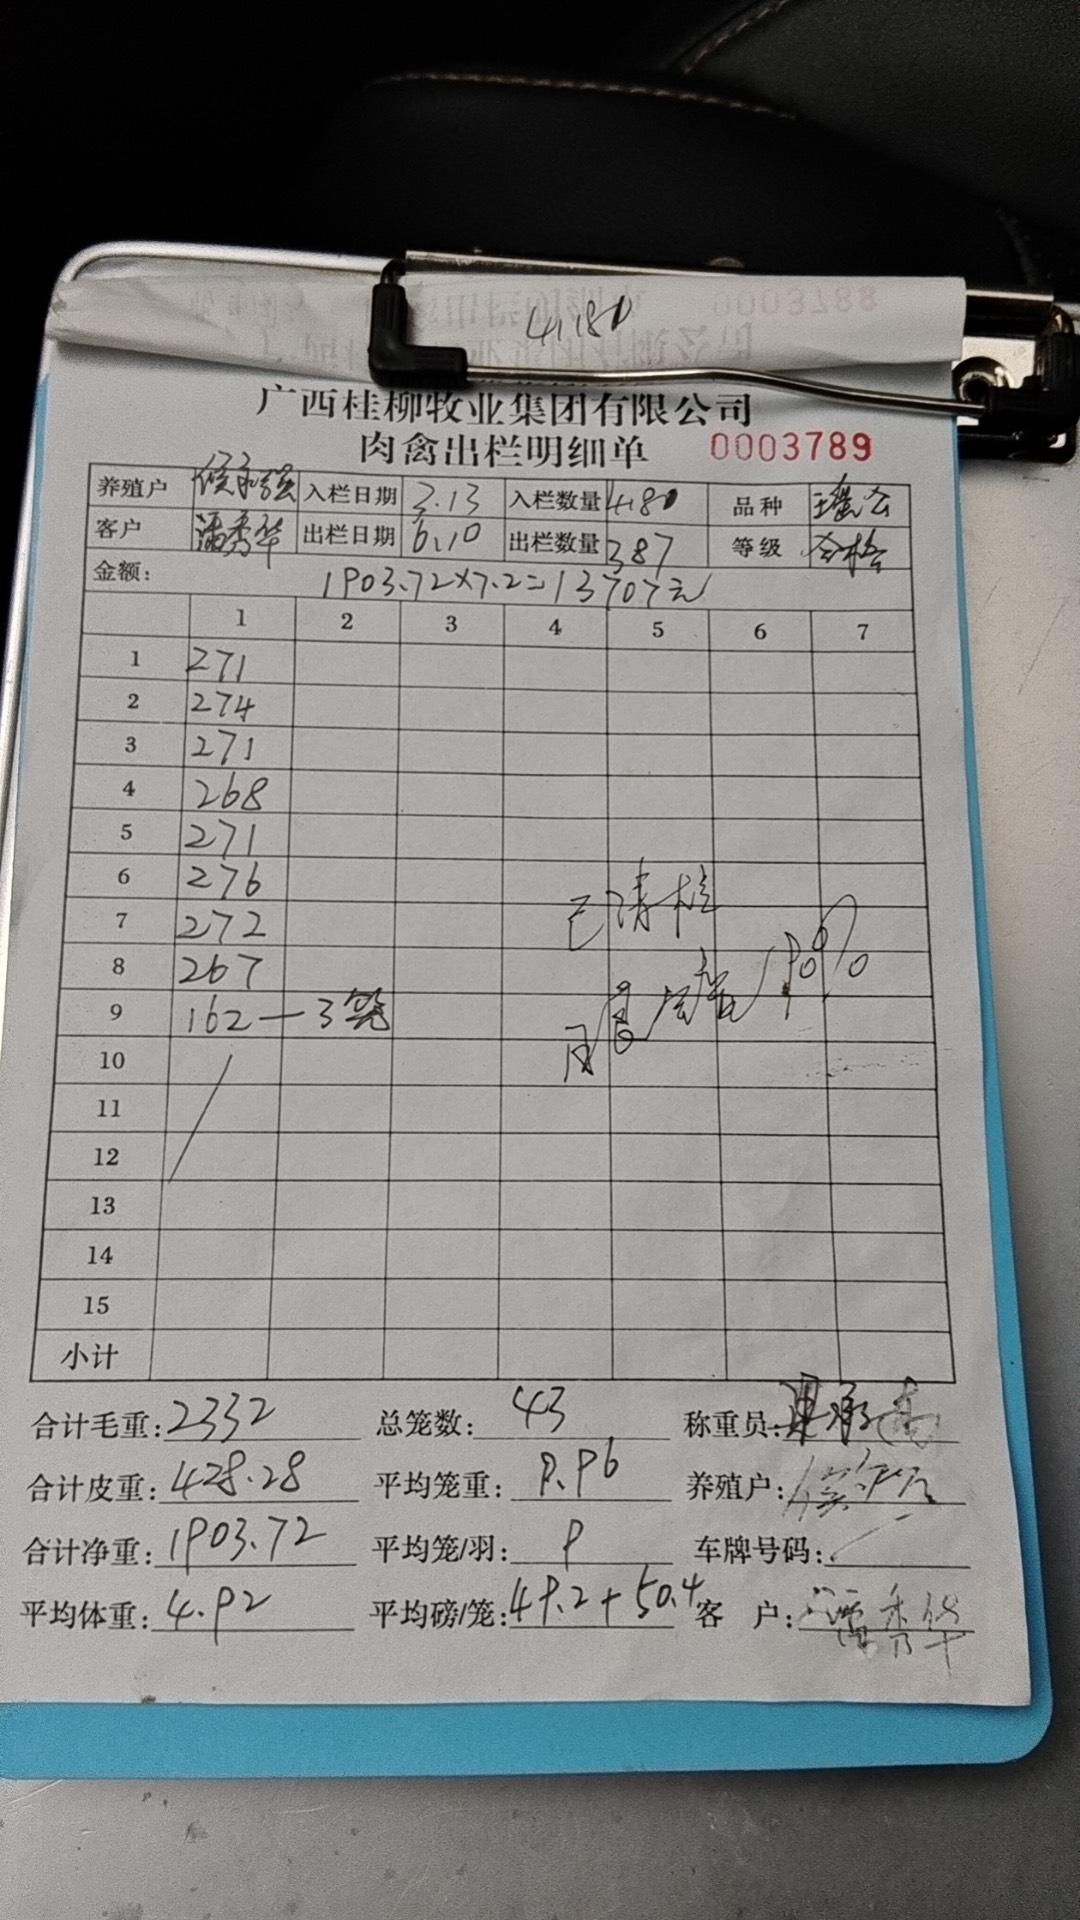 4180
广西桂柳牧业集团有限公司
肉禽出栏明细单 0003789
养殖户 入栏日期 3.13 入栏数量 4180 品种
客户 潘秀华 出栏日期 6.10 出栏数量 387 等级 合格
金额: 1903.72×7.2=13707元
1 2 3 4 5 6 7
1 271
2 274
3 271
4 268
5 271
6 276
7 272
8 267
9 162—3笼
10
11
12
13
14
15
小计
合计毛重: 2332 总笼数: 43 称重员:
合计皮重: 428.28 平均笼重: 9.96 养殖户:
合计净重: 1903.72 平均笼/羽: 9 车牌号码:
平均体重: 4.92 平均磅/笼: 49.2+50.4 客 户: 潘秀华